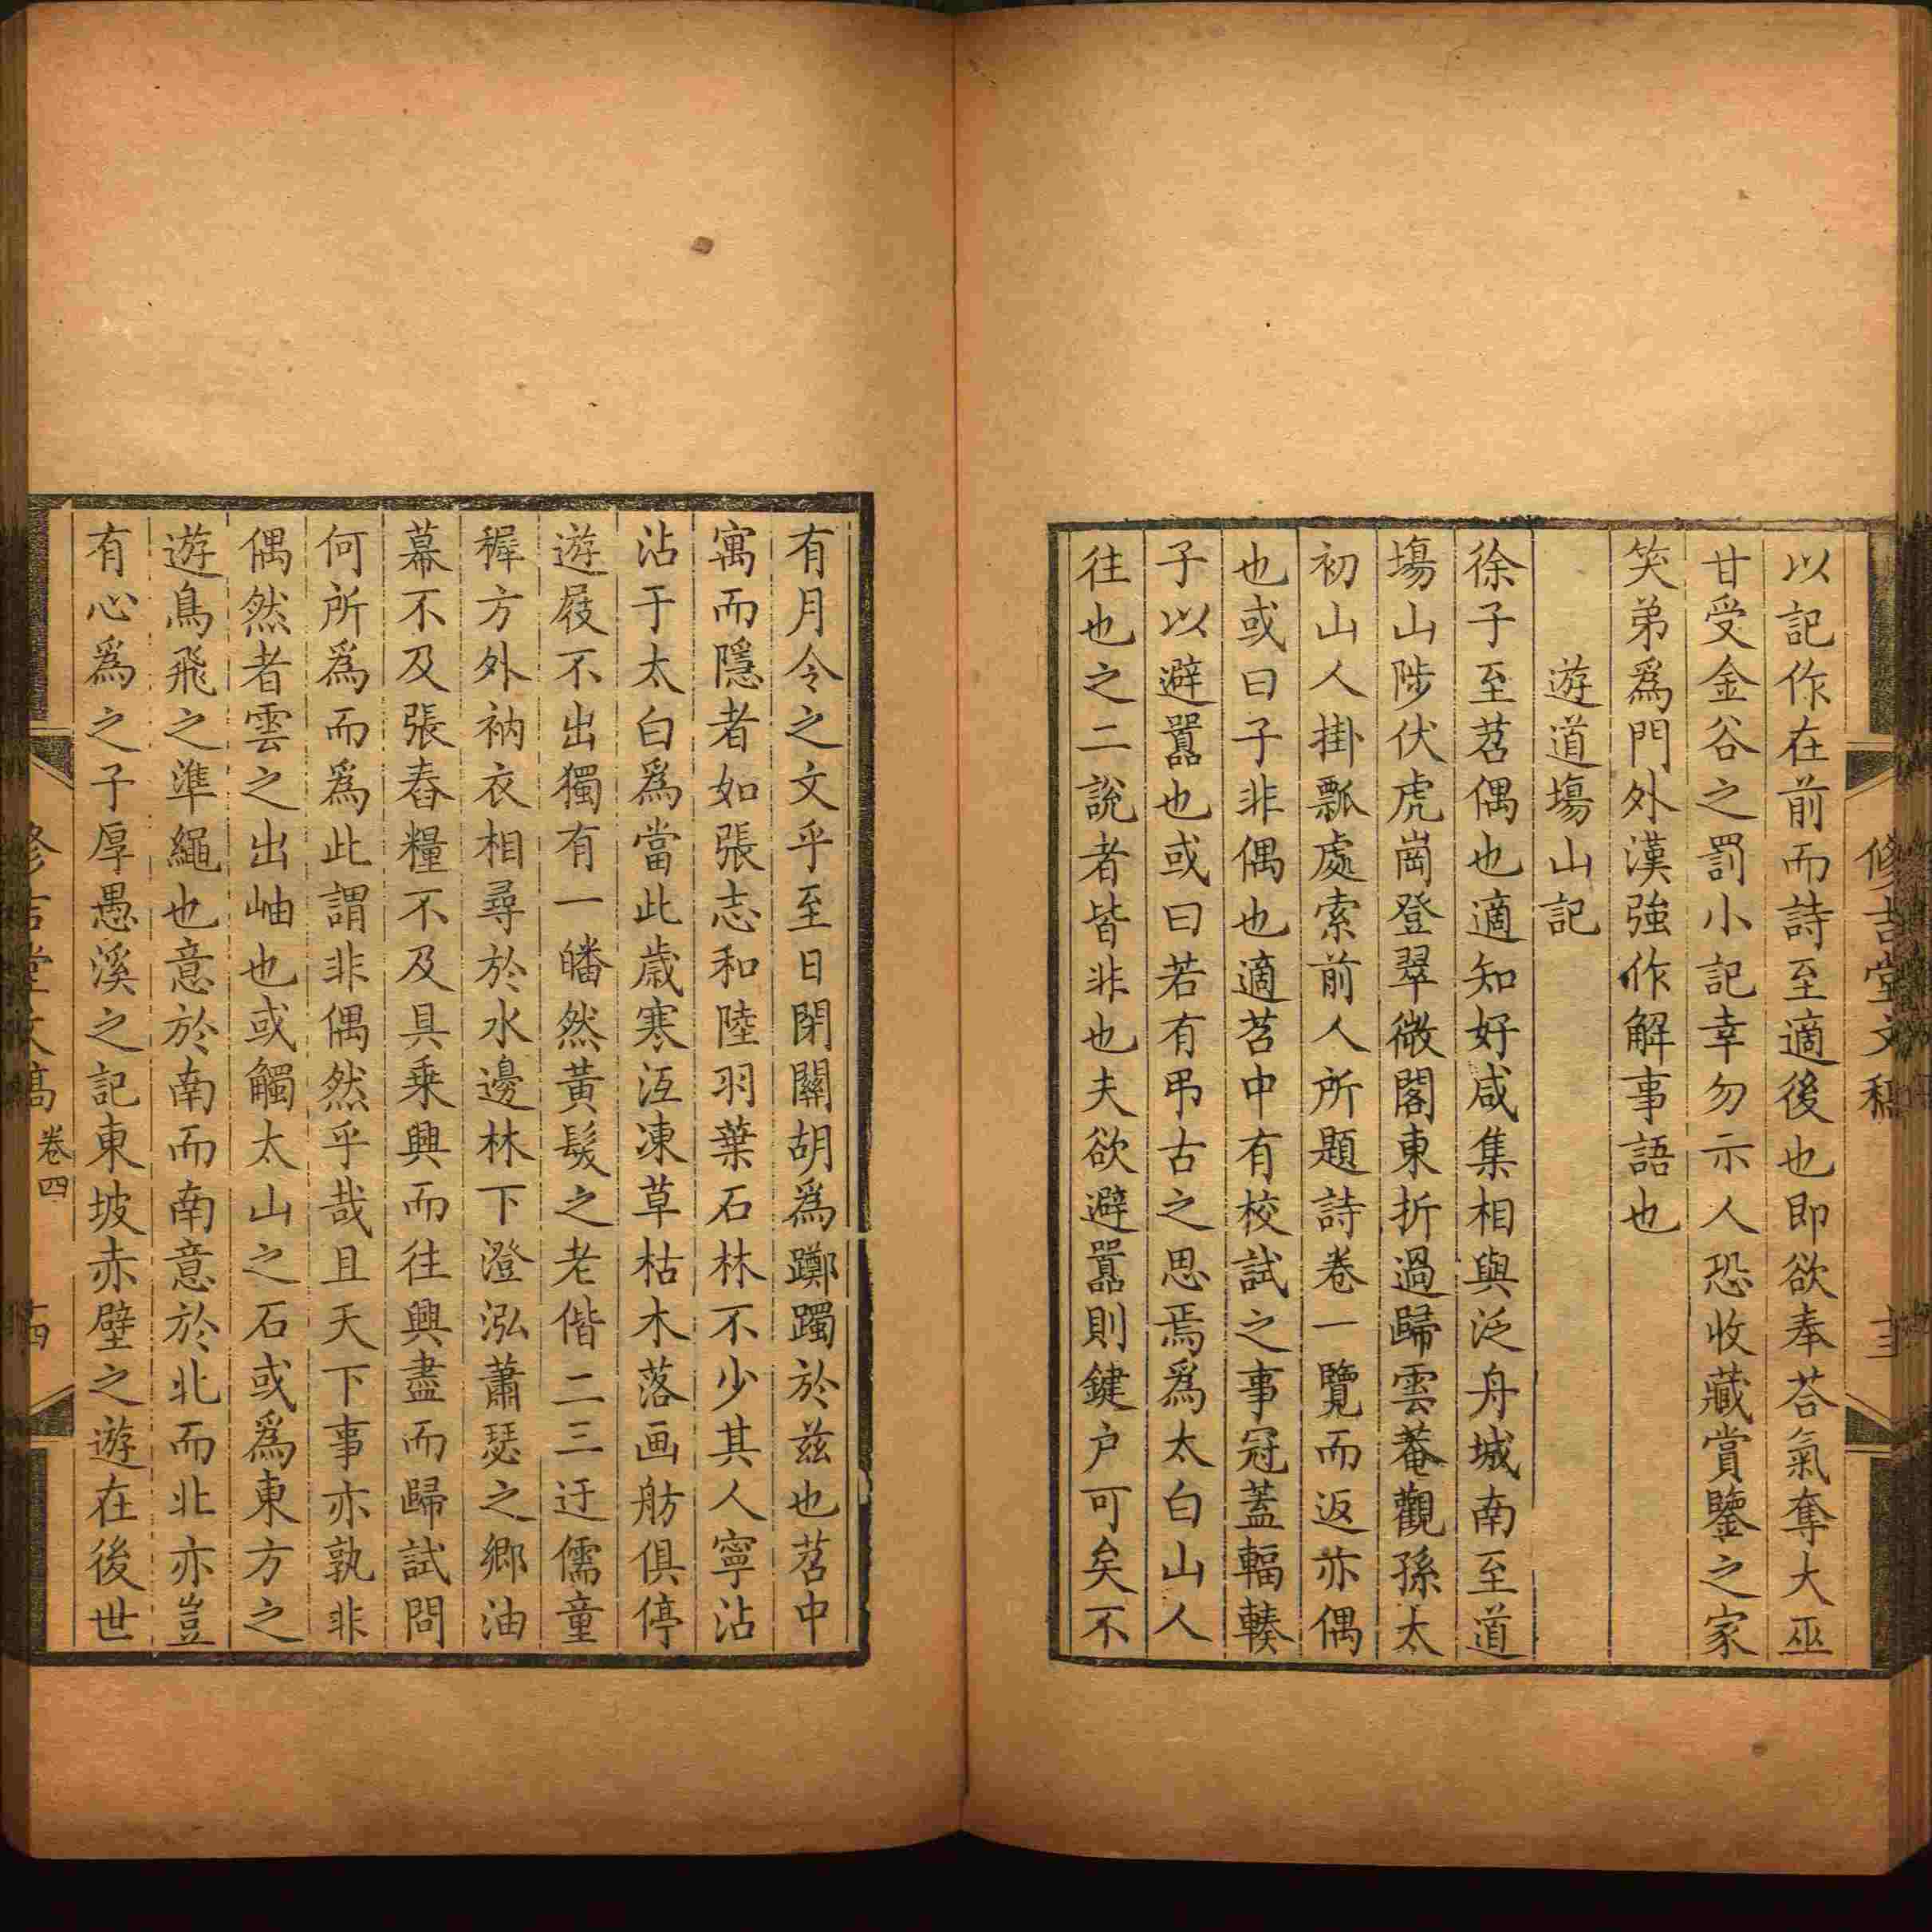 修吉堂文稿 十三
以記作在前而詩至適後也即欲奉荅氣奪大巫
甘受金谷之罰小記幸勿示人恐收藏賞鑒之家
笑弟爲門外漢強作解事語也
遊道塲山記
徐子至苕偶也適知好咸集相與泛舟城南至道
塲山陟伏虎崗登翠微閣東折過歸雲菴觀孫太
初山人掛瓢處索前人所題詩卷一覽而返亦偶
也或曰子非偶也適苕中有校試之事冠蓋輻輳
子以避囂也或曰若有弔古之思焉爲太白山人
往也之二說者皆非也夫欲避囂則鍵户可矣不
有月令之文乎至日閉關胡爲躑躅於兹也苕中
寓而隱者如張志和陸羽葉石林不少其人寧沾
沾于太白爲當此歲寒沍凍草枯木落画舫俱停
遊屐不出獨有一皤然黃髮之老偕二三迂儒童
穉方外衲衣相尋於水邊林下澄泓蕭瑟之鄉油
幕不及張舂糧不及具乗興而往興盡而歸試問
何所爲而爲此謂非偶然乎哉且天下事亦孰非
偶然者雲之出岫也或觸太山之石或爲東方之
遊鳥飛之準繩也意於南而南意於北而北亦豈
有心爲之子厚愚溪之記東坡赤壁之遊在後世
修吉堂文稿 卷四 十四